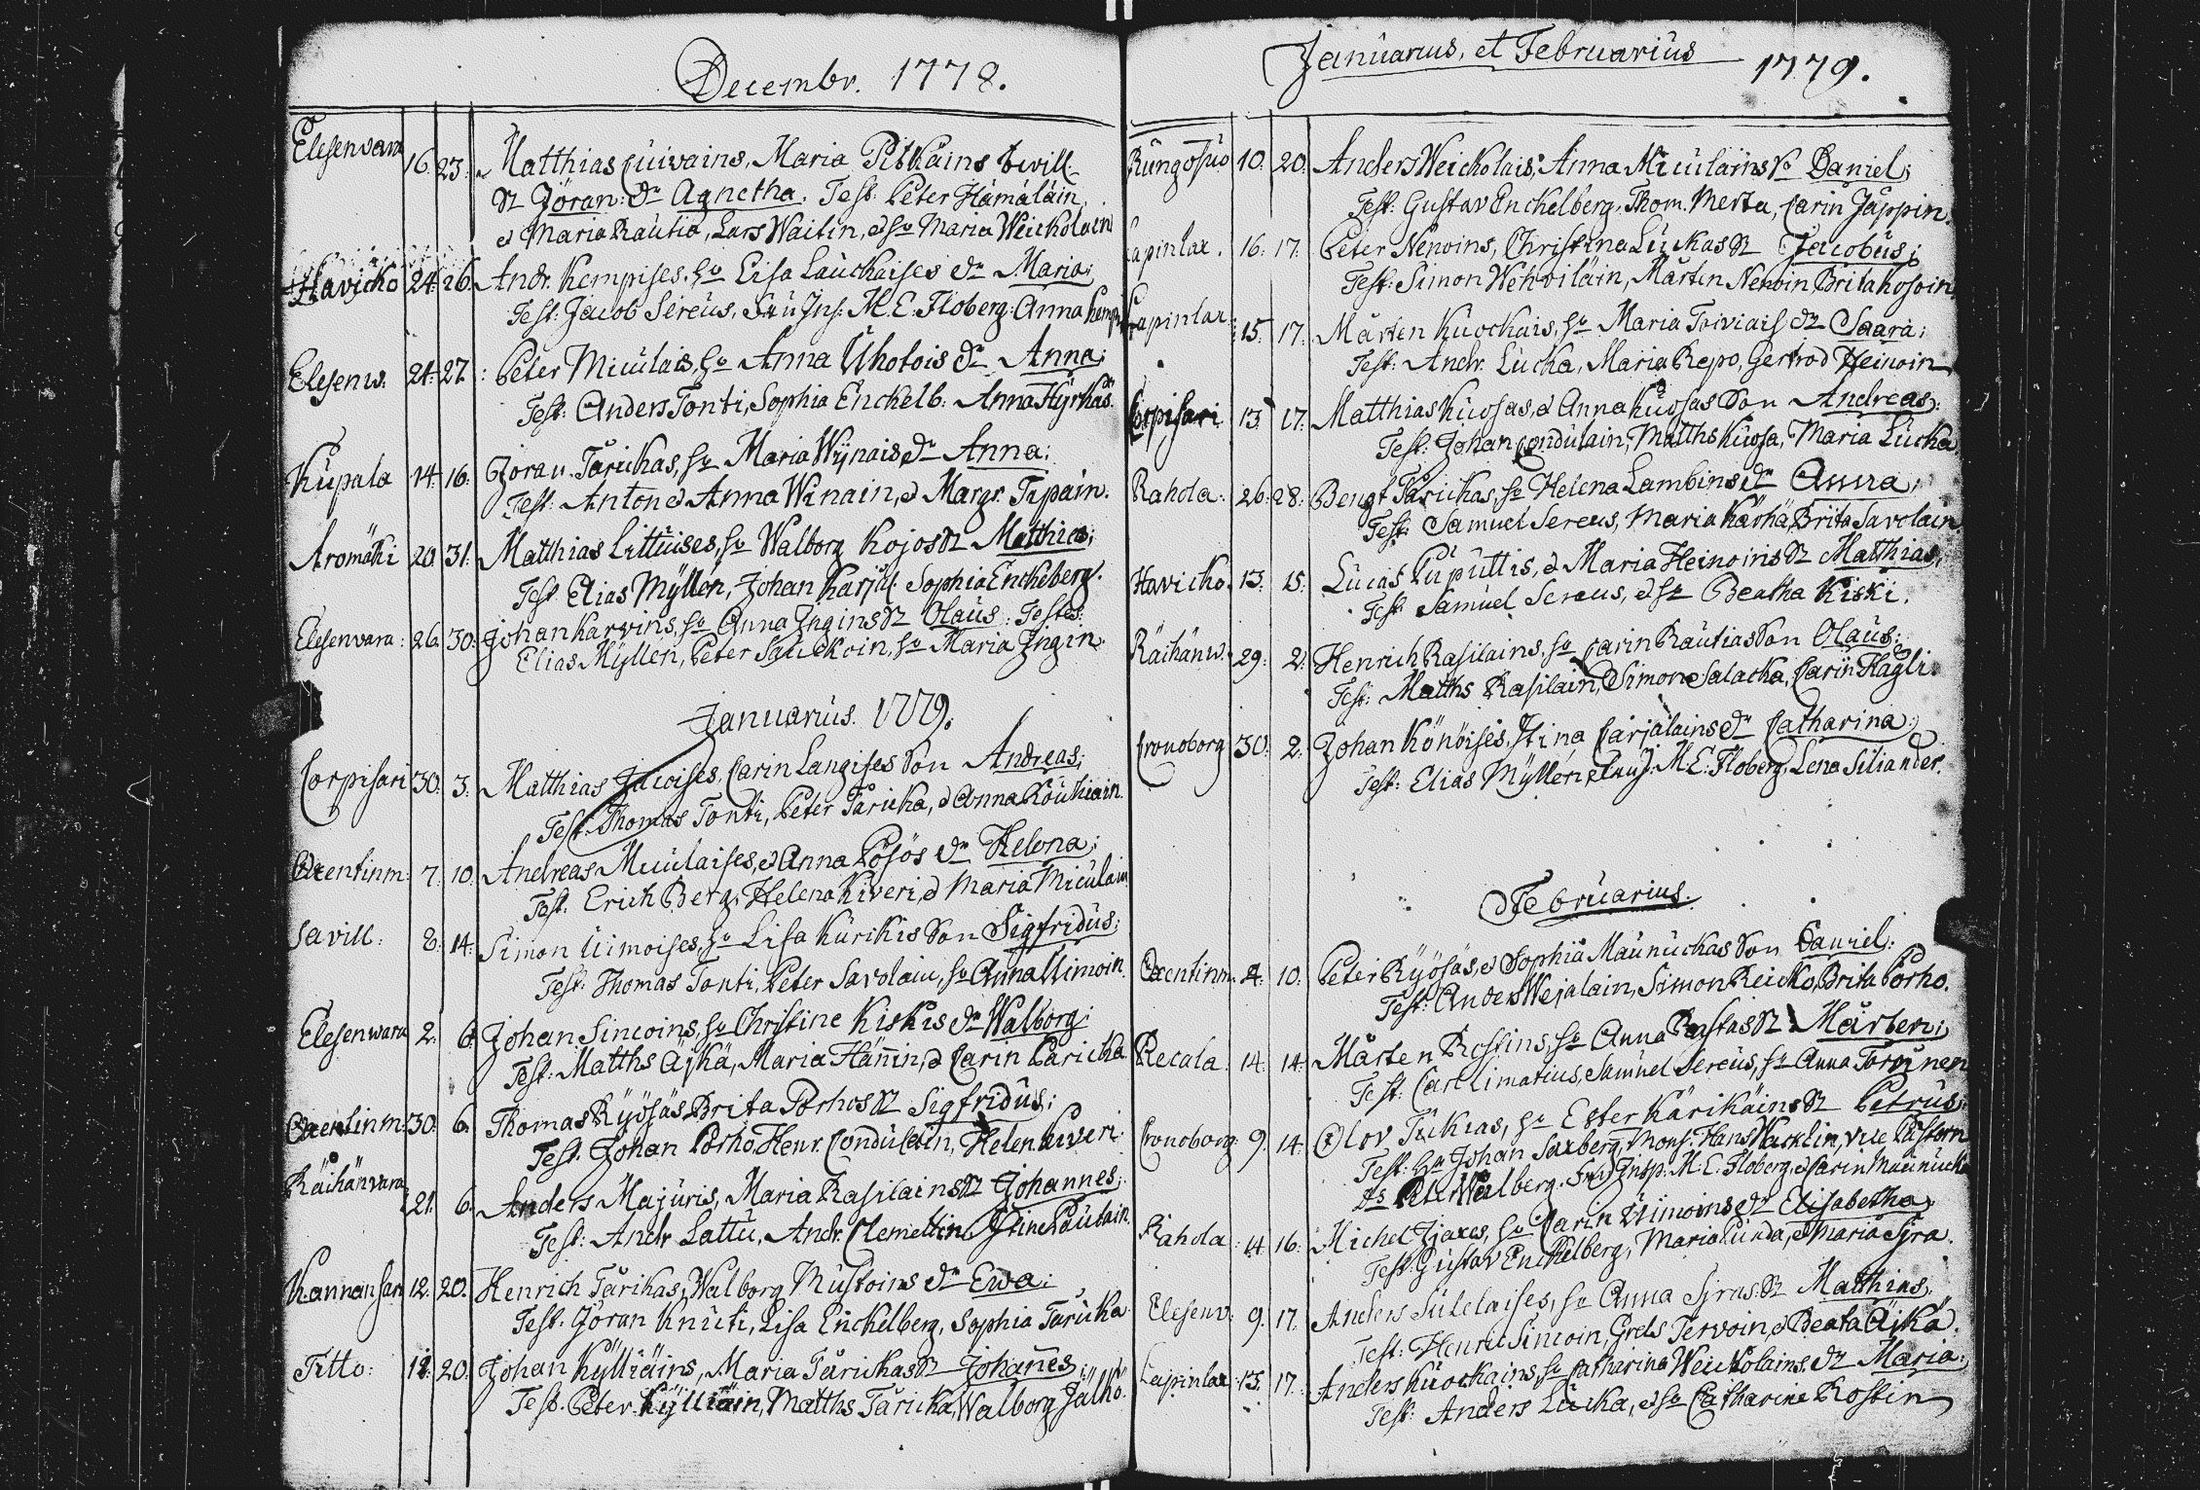 Decembr. 1778.
Elesenvara 16. 23. Matthias Cuivains, Maria Pitkains tvill.
Sn Jöran: Dr Agnetha. Test. Peter Hämäläin,
& Maria Rautia, Lars Waitin, & hu Maria Weickolain
Havicko 24. 26. Andr. Kempises, hu Lisa Lauckaises dr Maria;
Test: Jacob Sereus, Fru Ins: M. E. Floberg: Anna
Elesenw. 24. 27. Peter Miculais, hu Anna Uhotois dr Anna;
Test: Anders Tonti, Sophia Enckelb: Anna Hyrkäs.
Kupala 14. 16. Jöran Tarickas, hu Maria Wynais dr Anna;
Test: Anton & Anna Winain, & Margr. Tapain.
Aromäki 20. 31. Matthias Littuises, hu Walborg Kojos Sn Matthias;
Test Elias Myllen, Johan Karjal Sophia Enckeberg.
Elesenvara: 26. 30. Johan Karvins, hu Anna Ingins Sn Olaus: Testes:
Elias Myllen, Peter Sauckoin, hu Maria Ingin.
Januarius. 1779.
Corpisari 30. 3. Matthias Jucoises, Carin Langises Son Andreas;
Test: Thomas Tonti, Peter Taricka, & Anna Koukiain.
Axentinm: 7. 10. Andreas Miculaises, & Anna Pösös dr Helena;
Test. Erich Berg, Helena Kiveri, & Maria Miculain
Savill: 8. 14. Simon Uimoises, hu Lisa Kurikis Son Sigfridus;
Test: Thomas Tonti, Peter Savolain, hu Anna Uimoin.
Elesenwara 2. 6. Johan Sincoins, hu Christine Kiskis dr Walborg;
Test: Matths Äjkä, Maria Hänin, & Carin Paricka
Axentinm: 30. 6. Thomas Ryösäs Brita Porhos Sn Sigfridus;
Test. Johan Porho Henr. Condulain, Helen Kiveri.
Räihänvara 21. 6. Anders Majuris, Maria Rasilains Sn Johannes;
Test: Andr Lattu, Andr. Clemettin, Stina Paulain.
Kannansari 12. 20. Henrich Tarikas, Walborg Mustoins dr Ewa;
Test. Jöran Knuti, Lisa Enckelberg, Sophia Taricka
Titto: 18. 20. Johan Kylliäins, Maria Tarickas Sn Johañes;
Test. Peter Kylliäin, Matths Taricka, Walborg Jälkö.
Januarius, et Februarius 1779.
Rungosuo 10. 20. Anders Weickolais, Anna Miculains Sn Daniel;
Test: Gustav Enckelberg, Thom. Merta, Carin Jäppin.
Lapinlax. 16. 17. Peter Nenoins, Christina Luckas Sn Jacobus;
Test: Simon Wehviläin, Mårten Nenoin Brita Kosoin
Lapinlax 15. 17. Mårten Kuockais, hu Maria Toiviais dr Saara;
Test. Andr. Lucka, Maria Repo, Gertrod Heinoin
Corpisari 13. 17. Matthias Kuosas, & Anna Kuosas Son Andreas;
Test: Johan Condulain, Matths Kuosa, Maria Lucka
Rahola. 26. 28. Bengt Tarickas, hu Helena Lambins dr Anna;
Test: Samuel Sereus, Maria Kärhä, Brita Savolain
Havicko. 13. 15. Lucas Puputtis, & Maria Heinoins Sn Matthias;
Test Samuel Sereus, & hu Beatha Kiski.
Räihänw. 29. 2. Henrich Rasilains, hu Carin Rautias Son Olaus;
Test: Matths Rasilain, Simon Salacka, Carin Hagli.
Cronoborg 30. 2. Johan Könöises, Stina Carjalains dr Catharina;
Test: Elias Myllen, M. E. Floberg, Lena Siliander.
Februarius.
Axentinm. 4. 10. Peter Ryösäs, & Sophia Maunuckas Son Daniel;
Test: Anders Wejalain, Simon Reicko, Brita Porho.
Recala. 14. 14. Mårten Rossins, hu Anna Rastas Sn Mårten;
Test: Carl Limatius, Samuel Sereus, hu Anna Torvinen
Cronoborg. 9. 14. Olov Tukias, hu Ester Kärikäins Sn Petrus;
Test: Hr Johan Saxberg, Mons. Hans Wacklin, vice Pastorn
Hr Petr Walberg. Fru Insp: M. E. Floberg, & Carin Maunucka
Rahola. 14. 16. Michel Ijaxes, hu Carin Uimoins dr Elisabetha;
Test: Gustav Enckelberg, Maria Punda, & Maria Sjra.
Elesenv. 9. 17. Anders Sulelaises, hu Anna Sjras Sn Matthias;
Test: Henric Sincoin, Grels Tervoin, & Beata Äjkä.
Lapinlax. 13. 17. Anders Kuockains, hu Catharina Weickolains dr Maria;
Test: Anders Lucka, & hu Catharina Rossin